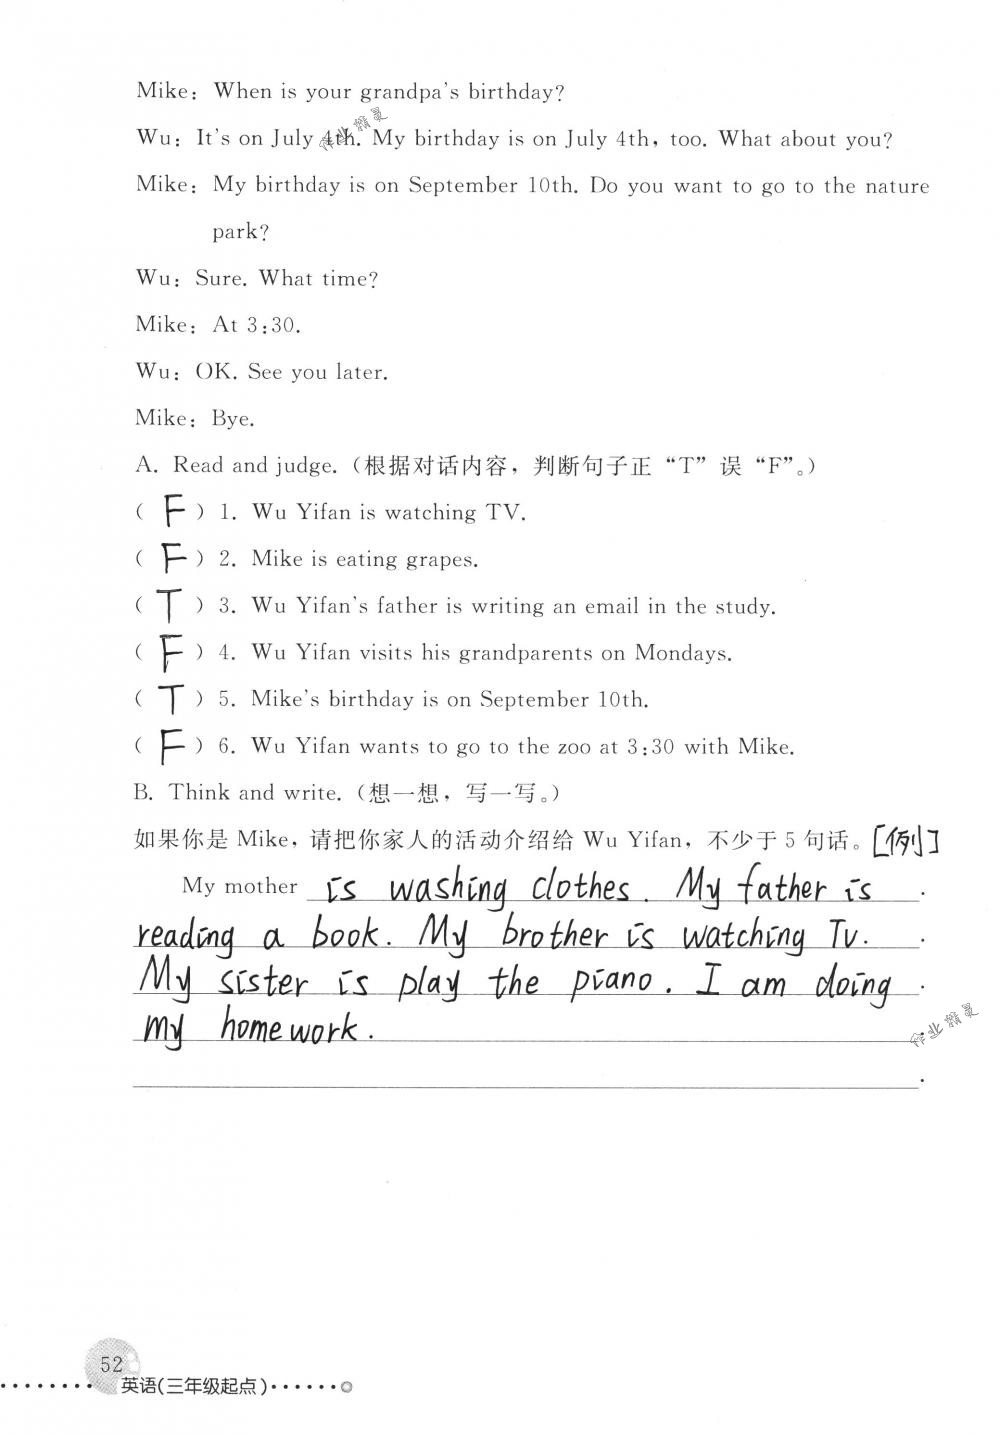 Mike: When is your grandpa's birthday?
Wu: It's on July 4th. My birthday is on July 4th, too. What about you?
Mike: My birthday is on September 10th. Do you want to go to the nature
park?
Wu: Sure. What time?
Mike: At 3:30.
Wu: OK. See you later.
Mike: Bye.
A. Read and judge.(根据对话内容，判断句子正“T”误“F”。)
( F ) 1. Wu Yifan is watching TV.
( F ) 2. Mike is eating grapes.
( T ) 3. Wu Yifan's father is writing an email in the study.
( F ) 4. Wu Yifan visits his grandparents on Mondays.
( T ) 5. Mike's birthday is on September 10th.
( F ) 6. Wu Yifan wants to go to the zoo at 3:30 with Mike.
B. Think and write.(想一想，写一写。)
如果你是 Mike，请把你家人的活动介绍给 Wu Yifan，不少于 5 句话。[例]
My mother is washing clothes. My father is .
reading a book. My brother is watching Tv. .
My sister is play the piano. I am doing .
my homework. .
.
作业精灵
作业精灵
52
英语(三年级起点)